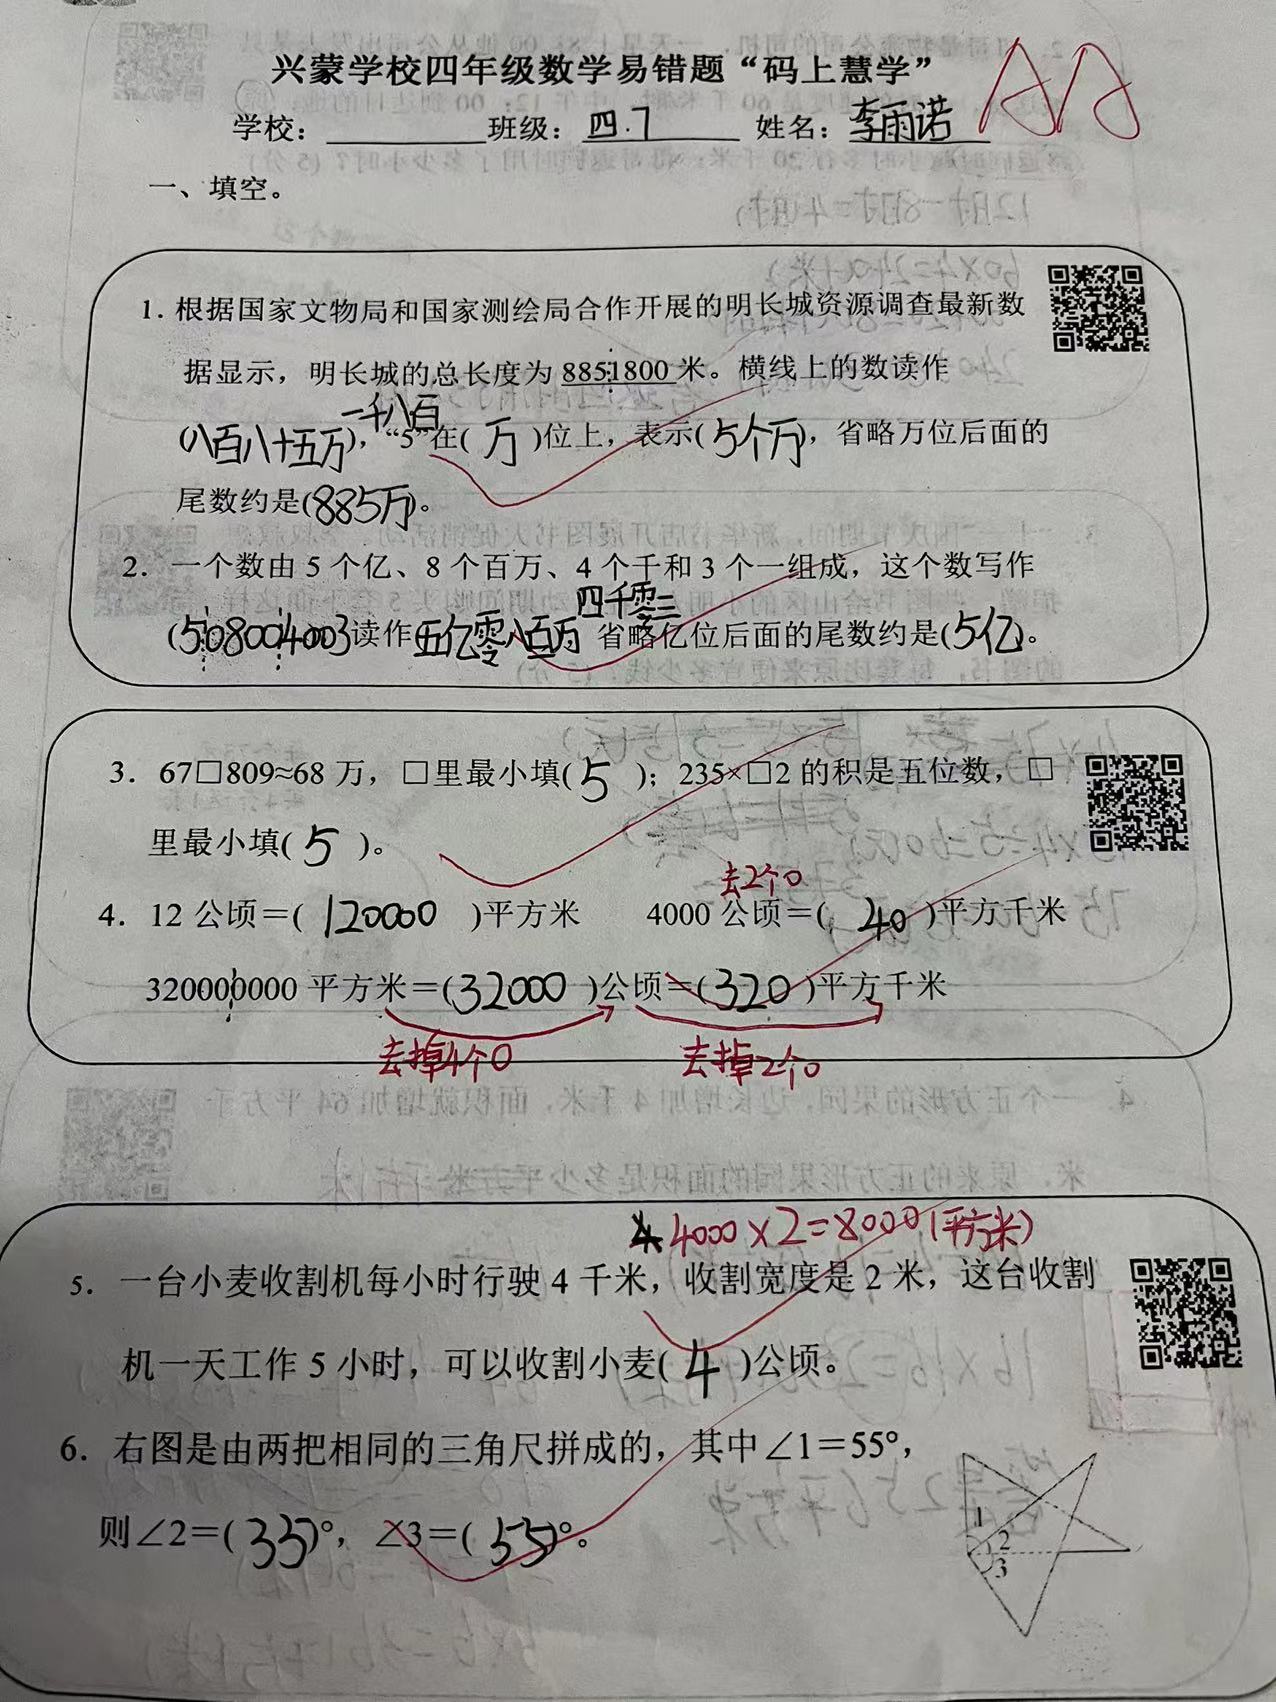 兴蒙学校四年级数学易错题“码上慧学”
AA
学校: 班级: 四.7 姓名: 李雨诺
一、填空。
1. 根据国家文物局和国家测绘局合作开展的明长城资源调查最新数
据显示，明长城的总长度为 8851800 米。横线上的数读作
一千八百
(八百八十五万)，“5”在( 万 )位上，表示( 5个万 )，省略万位后面的
尾数约是(885万)。
2. 一个数由 5 个亿、8 个百万、4 个千和 3 个一组成，这个数写作
四千零三
(508004003)读作(五亿零八百万 省略亿位后面的尾数约是(5亿)。
3. 67□809≈68 万，□里最小填( 5 )；235×□2 的积是五位数，□
里最小填( 5 )。
去2个0
4. 12 公顷＝( 120000 )平方米 4000 公顷＝( 40 )平方千米
320000000 平方米＝(32000 )公顷＝(320 )平方千米
去掉4个0 去掉2个0
4000×2=8000(平方米)
5. 一台小麦收割机每小时行驶 4 千米，收割宽度是 2 米，这台收割
机一天工作 5 小时，可以收割小麦( 4 )公顷。
6. 右图是由两把相同的三角尺拼成的，其中∠1＝55°，
则∠2＝( 35 )°，∠3＝( 55 )°。
1
2
3